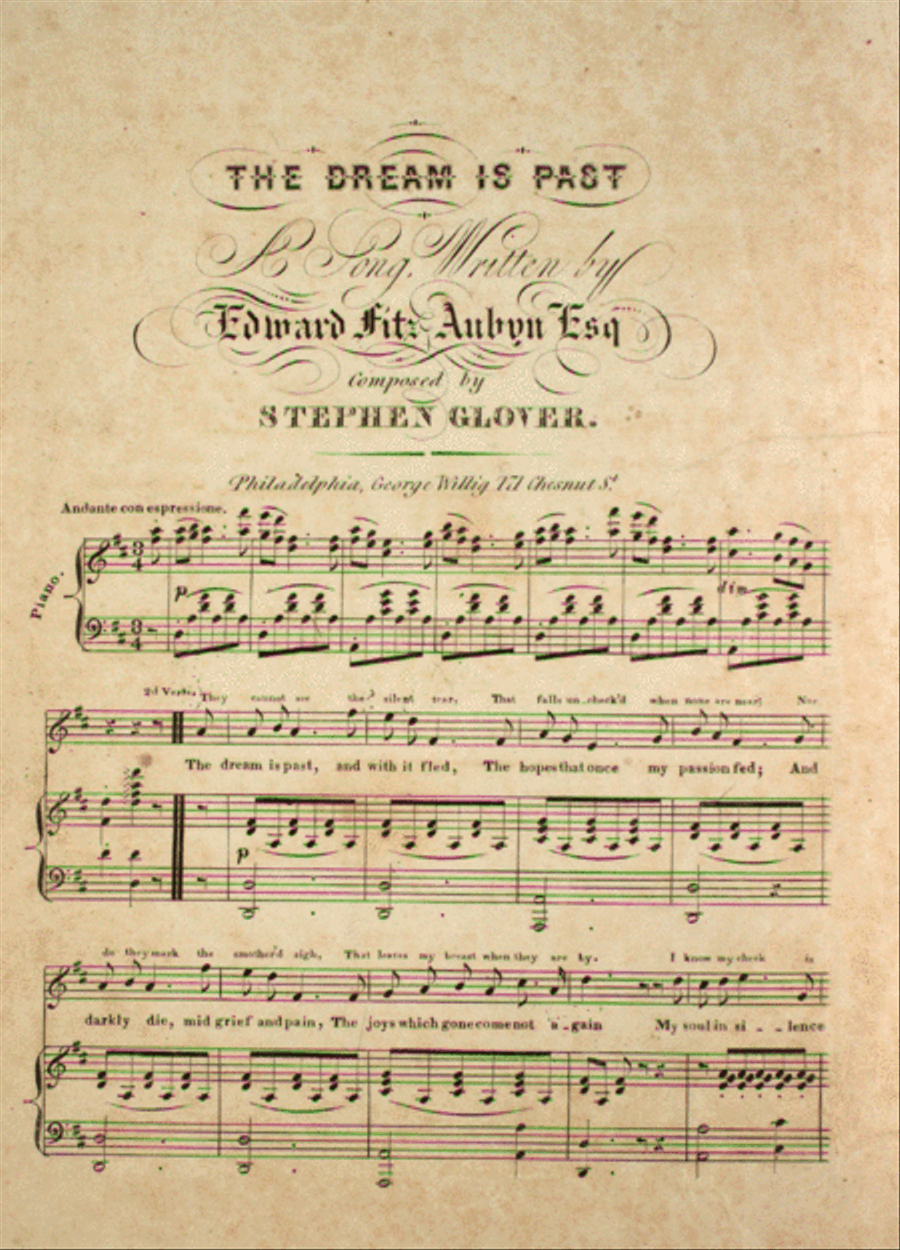 THE DREAM IS PAST
A Song, Written by
Edward Fitz Aubyn Esq
Composed by
STEPHEN GLOVER.
Philadelphia, George Willig 171 Chesnut St.
Andante con espressione.
Piano.
p
dim
2d Verse. They cannot see the silent tear, That falls un_check'd when none are near; Nor
The dream is past, and with it fled, The hopes that once my passion fed; And
p
do they mark the smother'd sigh, That heaves my breast when they are by. I know my cheek is
darkly die, mid grief and pain, The joys which gone come not a_gain My soul in si_ _lence